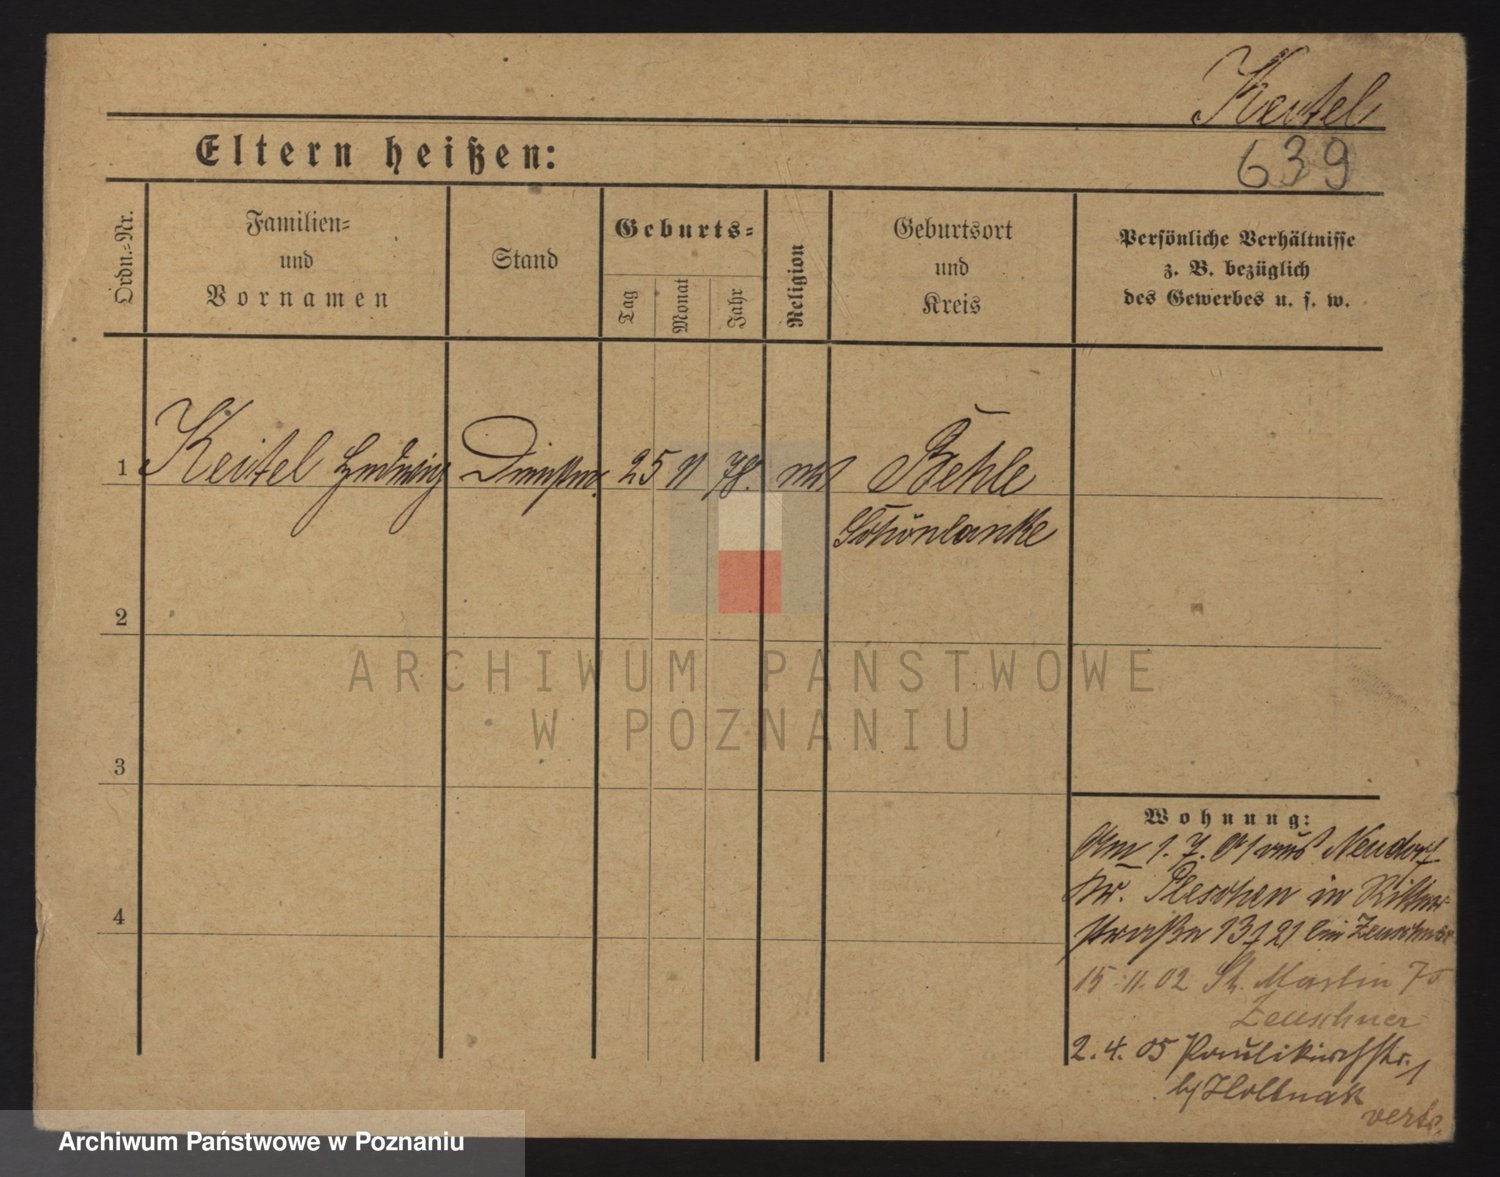 Keitel
639
Eltern heißen:
Ordn.-Nr.
Familien-
und
Vornamen
Stand
Geburts-
Tag
Monat
Jahr
Religion
Geburtsort
und
Kreis
Persönliche Verhältnisse
z. B. bezüglich
des Gewerbes u. s. w.
1 Keitel Hedwig 25 11 78. Behle
Schönlanke
2
ARCHIWUM PAŃSTWOWE
W POZNANIU
3
4
Wohnung:
Am 1. 7. 01 aus Neudorf
Kr. Pleschen in Ritter-
straße 13 21 bei Zeuschner
15 11. 02 St. Martin 70
Zeuschner
2. 4. 05 Paulikirchstr. 1
verte.
Archiwum Państwowe w Poznaniu